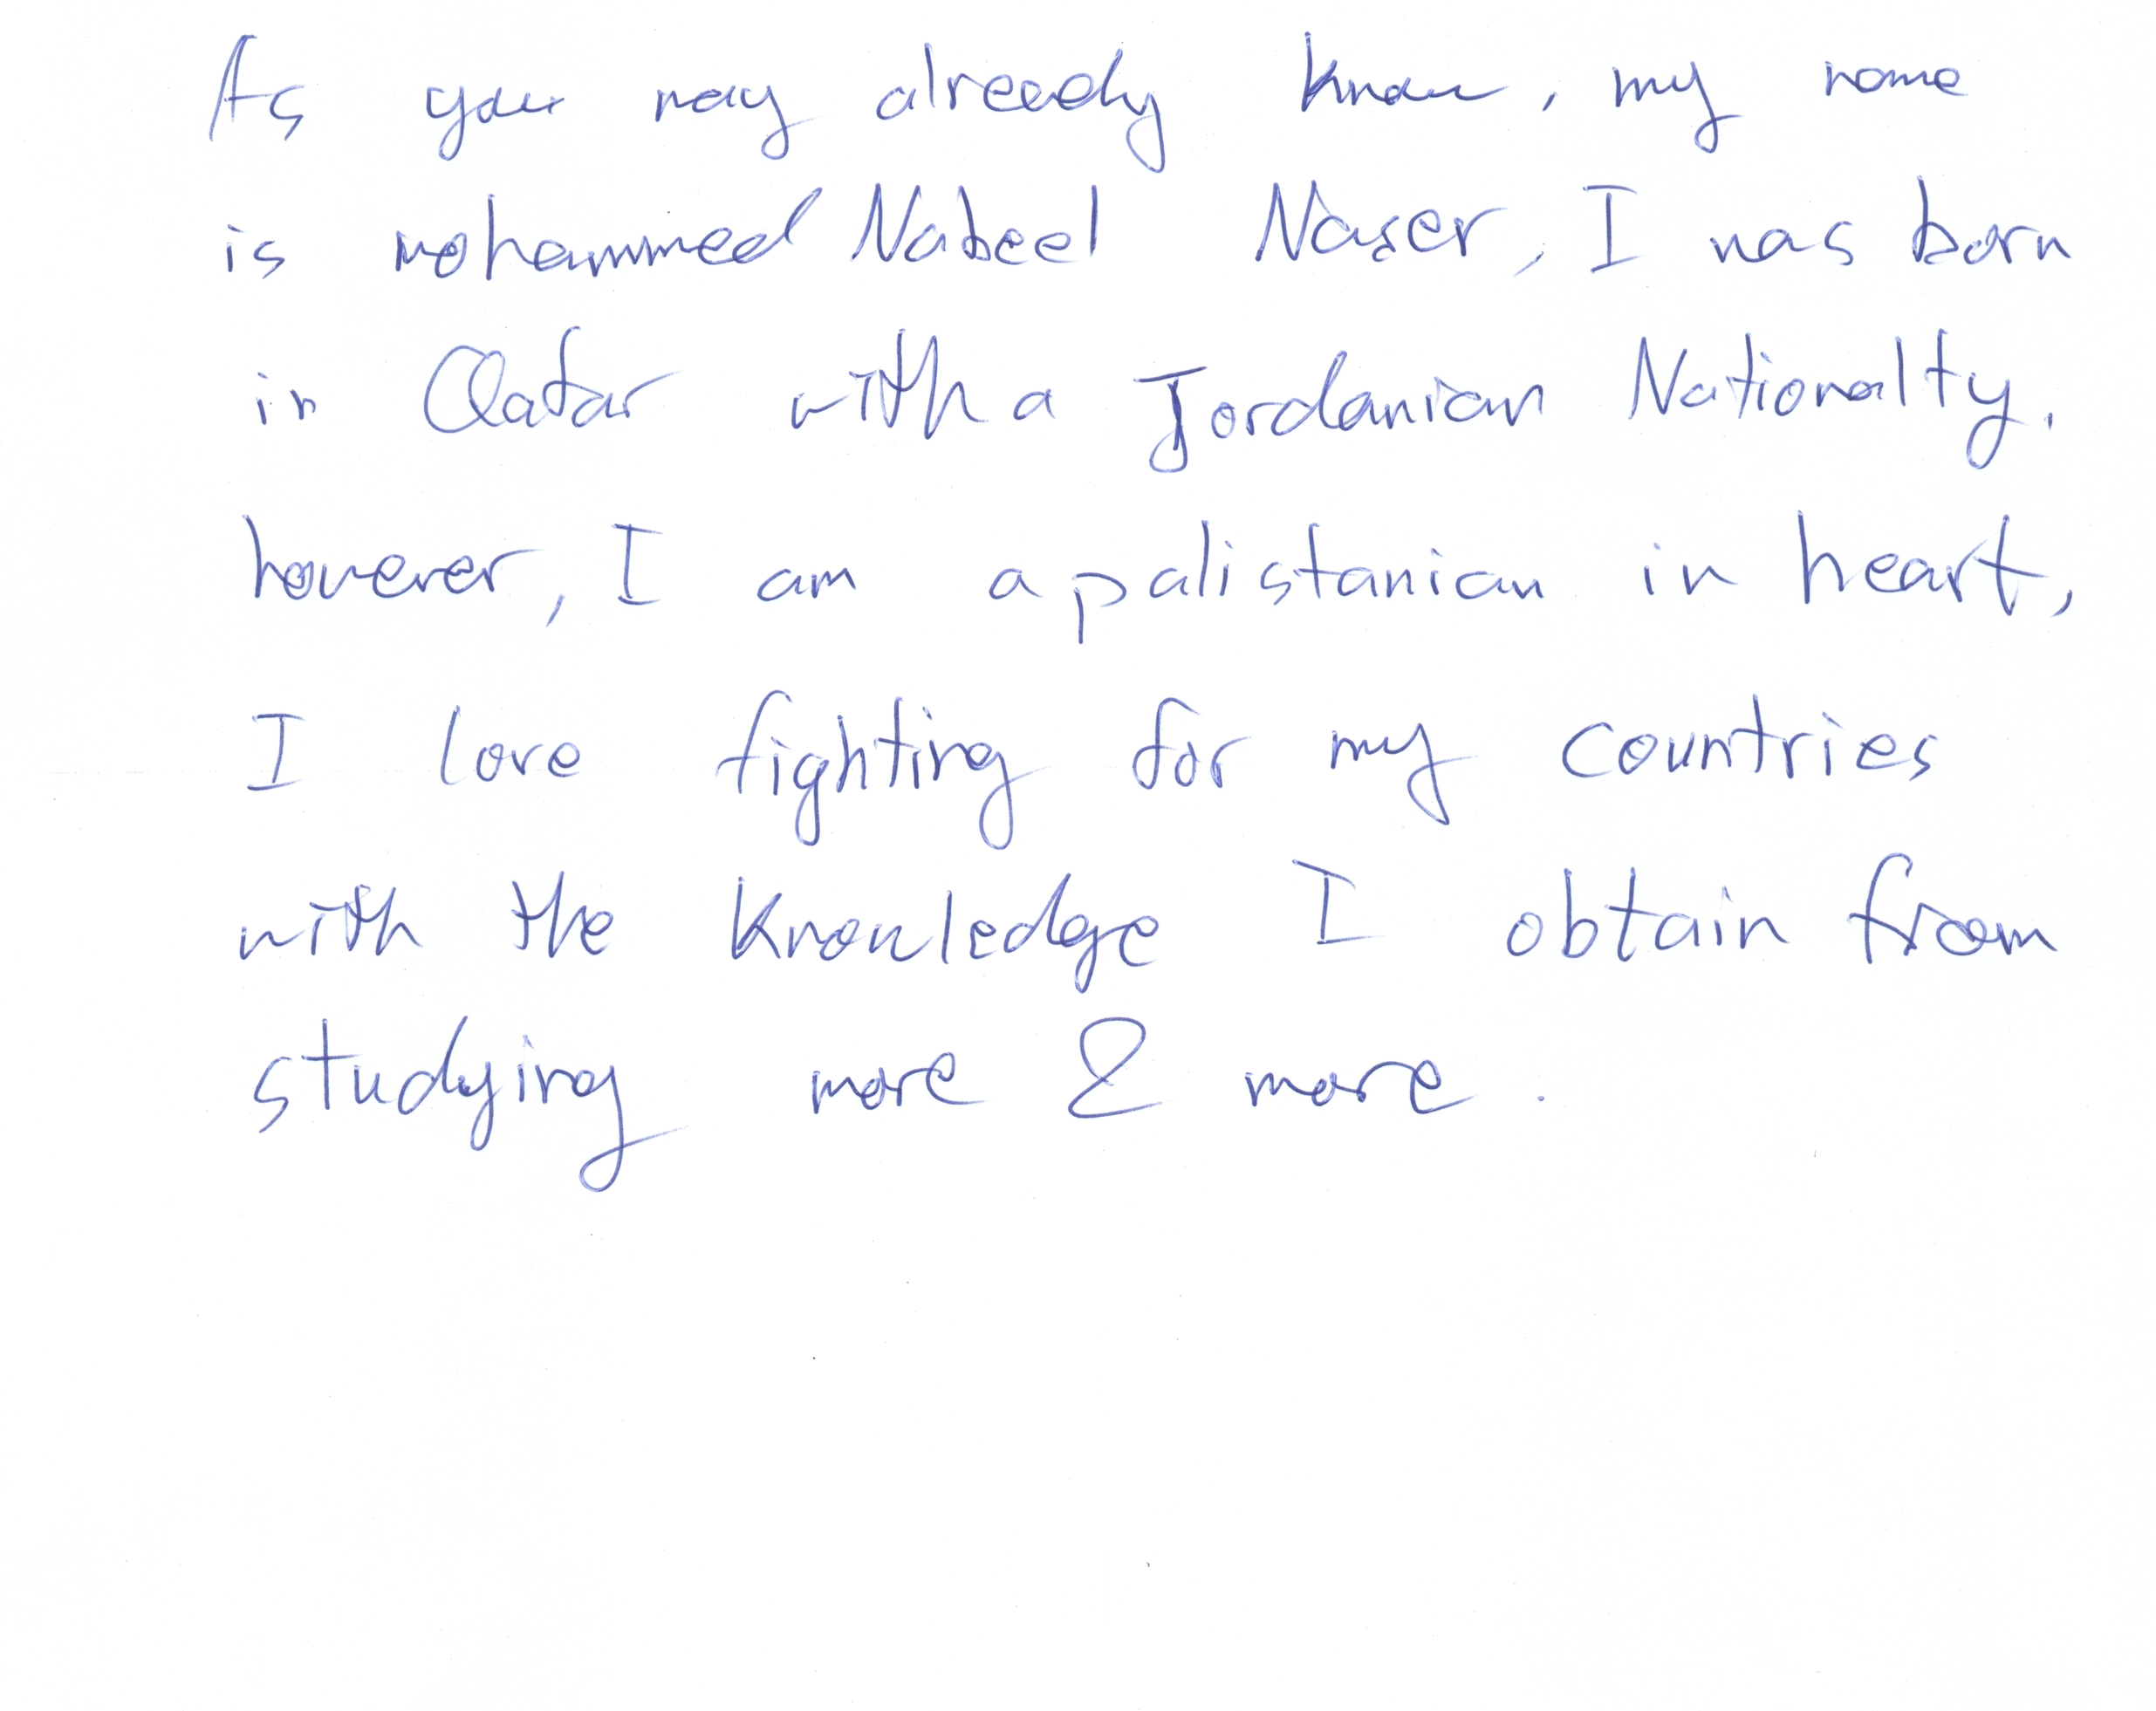 As you may already know, my name
is mohammed Nabeel Naser, I was born
in Qatar with a Jordanian Nationalty.
however, I am a palistanian in heart,
I love fighting for my countries
with the knowledge I obtain from
studying more & more.